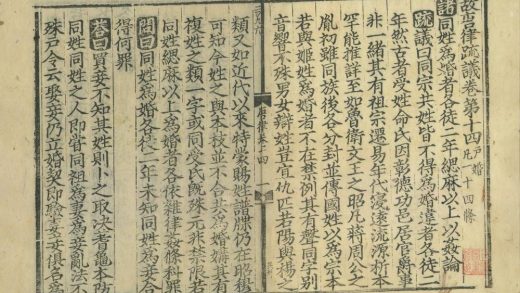 故唐律疏議卷第十四 戶婚 凡一十四條
諸同姓爲婚者各徒二年緦麻以上以姦論
疏議曰同宗共姓皆不得爲婚違者各徒二
年然古者受姓命氏因彰德功邑居官爵事
非一緒其有祖宗遷易年代寖遠流源析本
罕能推詳至如魯衛文王之昭凡蔣周公之
胤初雖同族後各分封並傳國姓以爲宗本
若與姬姓爲婚者不在禁例其有聲同字別
音響不殊男女辯姓豈宜仇匹若陽與楊之
律卷十四
類又如近代以來特蒙賜姓譜牒仍在昭穆
可知今姓之與本枝並不合共爲婚媾其有
複姓之類一字或同受氏既殊元非禁限若
同姓緦麻以上爲婚者各依雜律姦條科罪
問曰同姓爲婚各徒二年未知同姓爲妾合
得何罪
荅曰買妾不知其姓則卜之取決蓍龜本防
同姓同姓之人即嘗同祖爲妻爲妾亂法不
殊戶令云娶妾仍立婚契即驗妻妾俱名爲